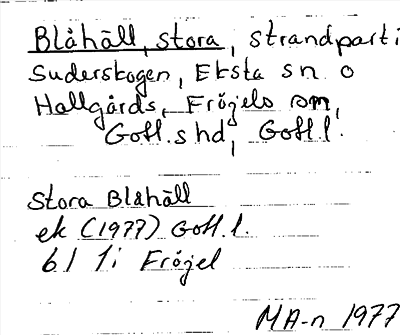 Blåhäll, stora, strandparti
Suderskogen, Eksta sn o
Hallgårds, Fröjels sm,
Gotl.s hd, Gotl.l.
Stora Blåhäll
ek (1977) Gotl.l.
bl 1i Fröjel
MA-n 1977